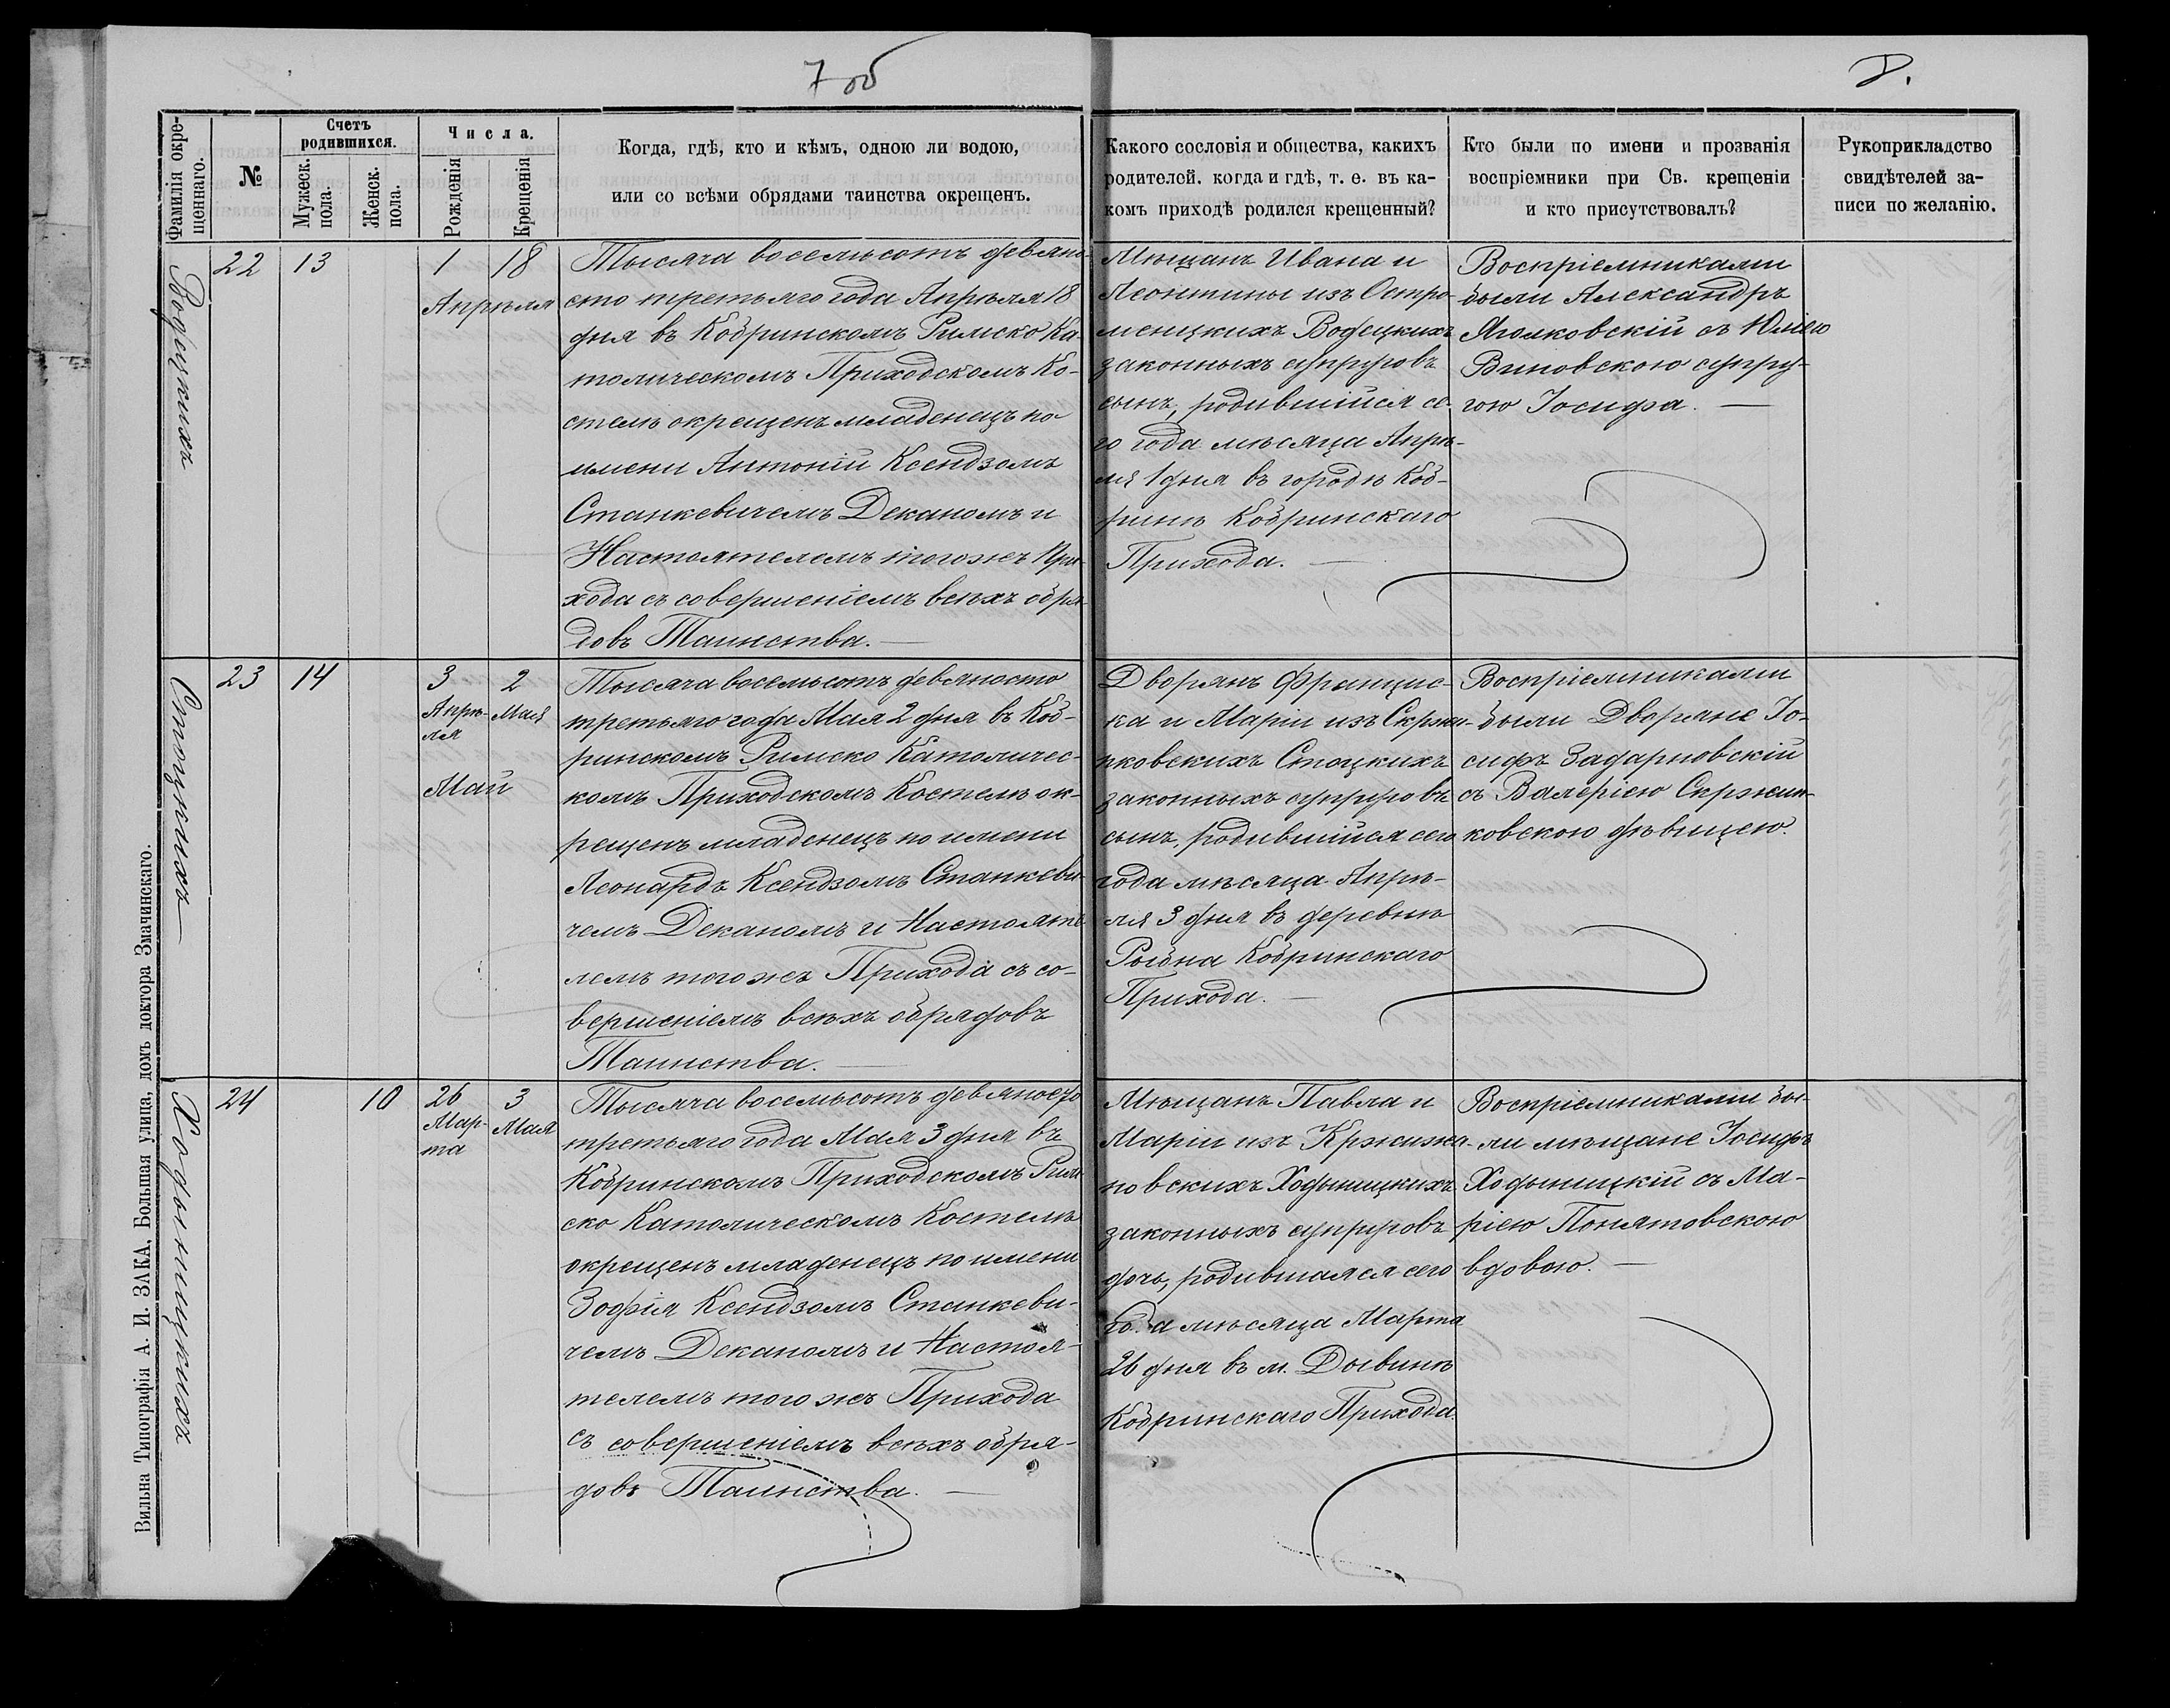 7 об
8.
Фамилія окре-
щеннаго.
№
Счетъ
родившихся.
Мужеск.
пола.
Женск.
пола.
Числа.
Рожденія
Крещенія
Когда, гдѣ, кто и кѣмъ, одною ли водою,
или со всѣми обрядами таинства окрещенъ.
Какого сословія и общества, какихъ
родителей. когда и гдѣ, т. е. въ ка-
комъ приходѣ родился крещенный?
Кто были по имени и прозванія
воспріемники при Св. крещеніи
и кто присутствовалъ?
Рукоприкладство
свидѣтелей за-
писи по желанію.
Водецкихъ
22 13 1 18
Апрѣля
Тысяча восемьсотъ девяно-
сто третьяго года Апрѣля 18
дня въ Кобринскомъ Римско Ка-
толическомъ Приходскомъ Ко-
стелѣ окрещенъ младенецъ по
имени Антоній Ксендзомъ
Станкевичемъ Деканомъ и
Настоятелемъ того же При-
хода съ совершеніемъ всѣхъ обря-
довъ Таинства.
Мѣщанъ Ивана и
Леонтины изъ Остро-
менцкихъ Водецкихъ
законныхъ супруговъ
сынъ, родившійся се-
го года мѣсяца Апрѣ-
ля 1 дня въ городѣ Коб-
ринѣ Кобринскаго
Прихода.
Воспріемниками
были Александръ
Яголковскій съ Юліею
Виновскою супру-
гою Іосифа.
Стоцкихъ
23 14 3 2
Апрѣ-
ля
Мая
Май
Тысяча восемьсотъ девяносто
третьяго года Мая 2 дня въ Коб-
ринскомъ Римско Католичес-
комъ Приходскомъ Костелѣ ок-
рещенъ младенецъ по имени
Леонардъ Ксендзомъ Станкеви-
чемъ Деканомъ и Настояте-
лемъ того же Прихода съ со-
вершеніемъ всѣхъ обрядовъ
Таинства.
Дворянъ Францис-
ка и Маріи изъ Скржи-
нковскихъ Стоцкихъ
законныхъ супруговъ
сынъ, родившійся сего
года мѣсяца Апрѣ-
ля 3 дня въ деревнѣ
Рыбна Кобринскаго
Прихода.
Воспріемниками
были Дворяне Іо-
сифъ Задарновскій
съ Валеріею Скржин-
ковскою дѣвицею.
Ходыницкихъ
24 10 26 3
Мар-
та
Мая
Тысяча восемьсотъ девяносто
третьяго года Мая 3 дня въ
Кобринскомъ Приходскомъ Рим-
ско Католическомъ Костелѣ
окрещенъ младенецъ по имени
Зофія Ксендзомъ Станкеви-
чемъ Деканомъ и Настоя-
телемъ того же Прихода
съ совершеніемъ всѣхъ обря-
довъ Таинства.
Мѣщанъ Павла и
Маріи изъ Кржижа-
новскихъ Ходыницкихъ
законныхъ супруговъ
дочь, родившаяся сего
года мѣсяца Марта
26 дня въ м. Дывинѣ
Кобринскаго Прихода.
Воспріемниками бы-
ли мѣщане Іосифъ
Ходыницкій съ Ма-
ріею Понятовскою
вдовою.
Вильна Типографія А. И. ЗАКА, Большая улица, домъ доктора Змачинскаго.